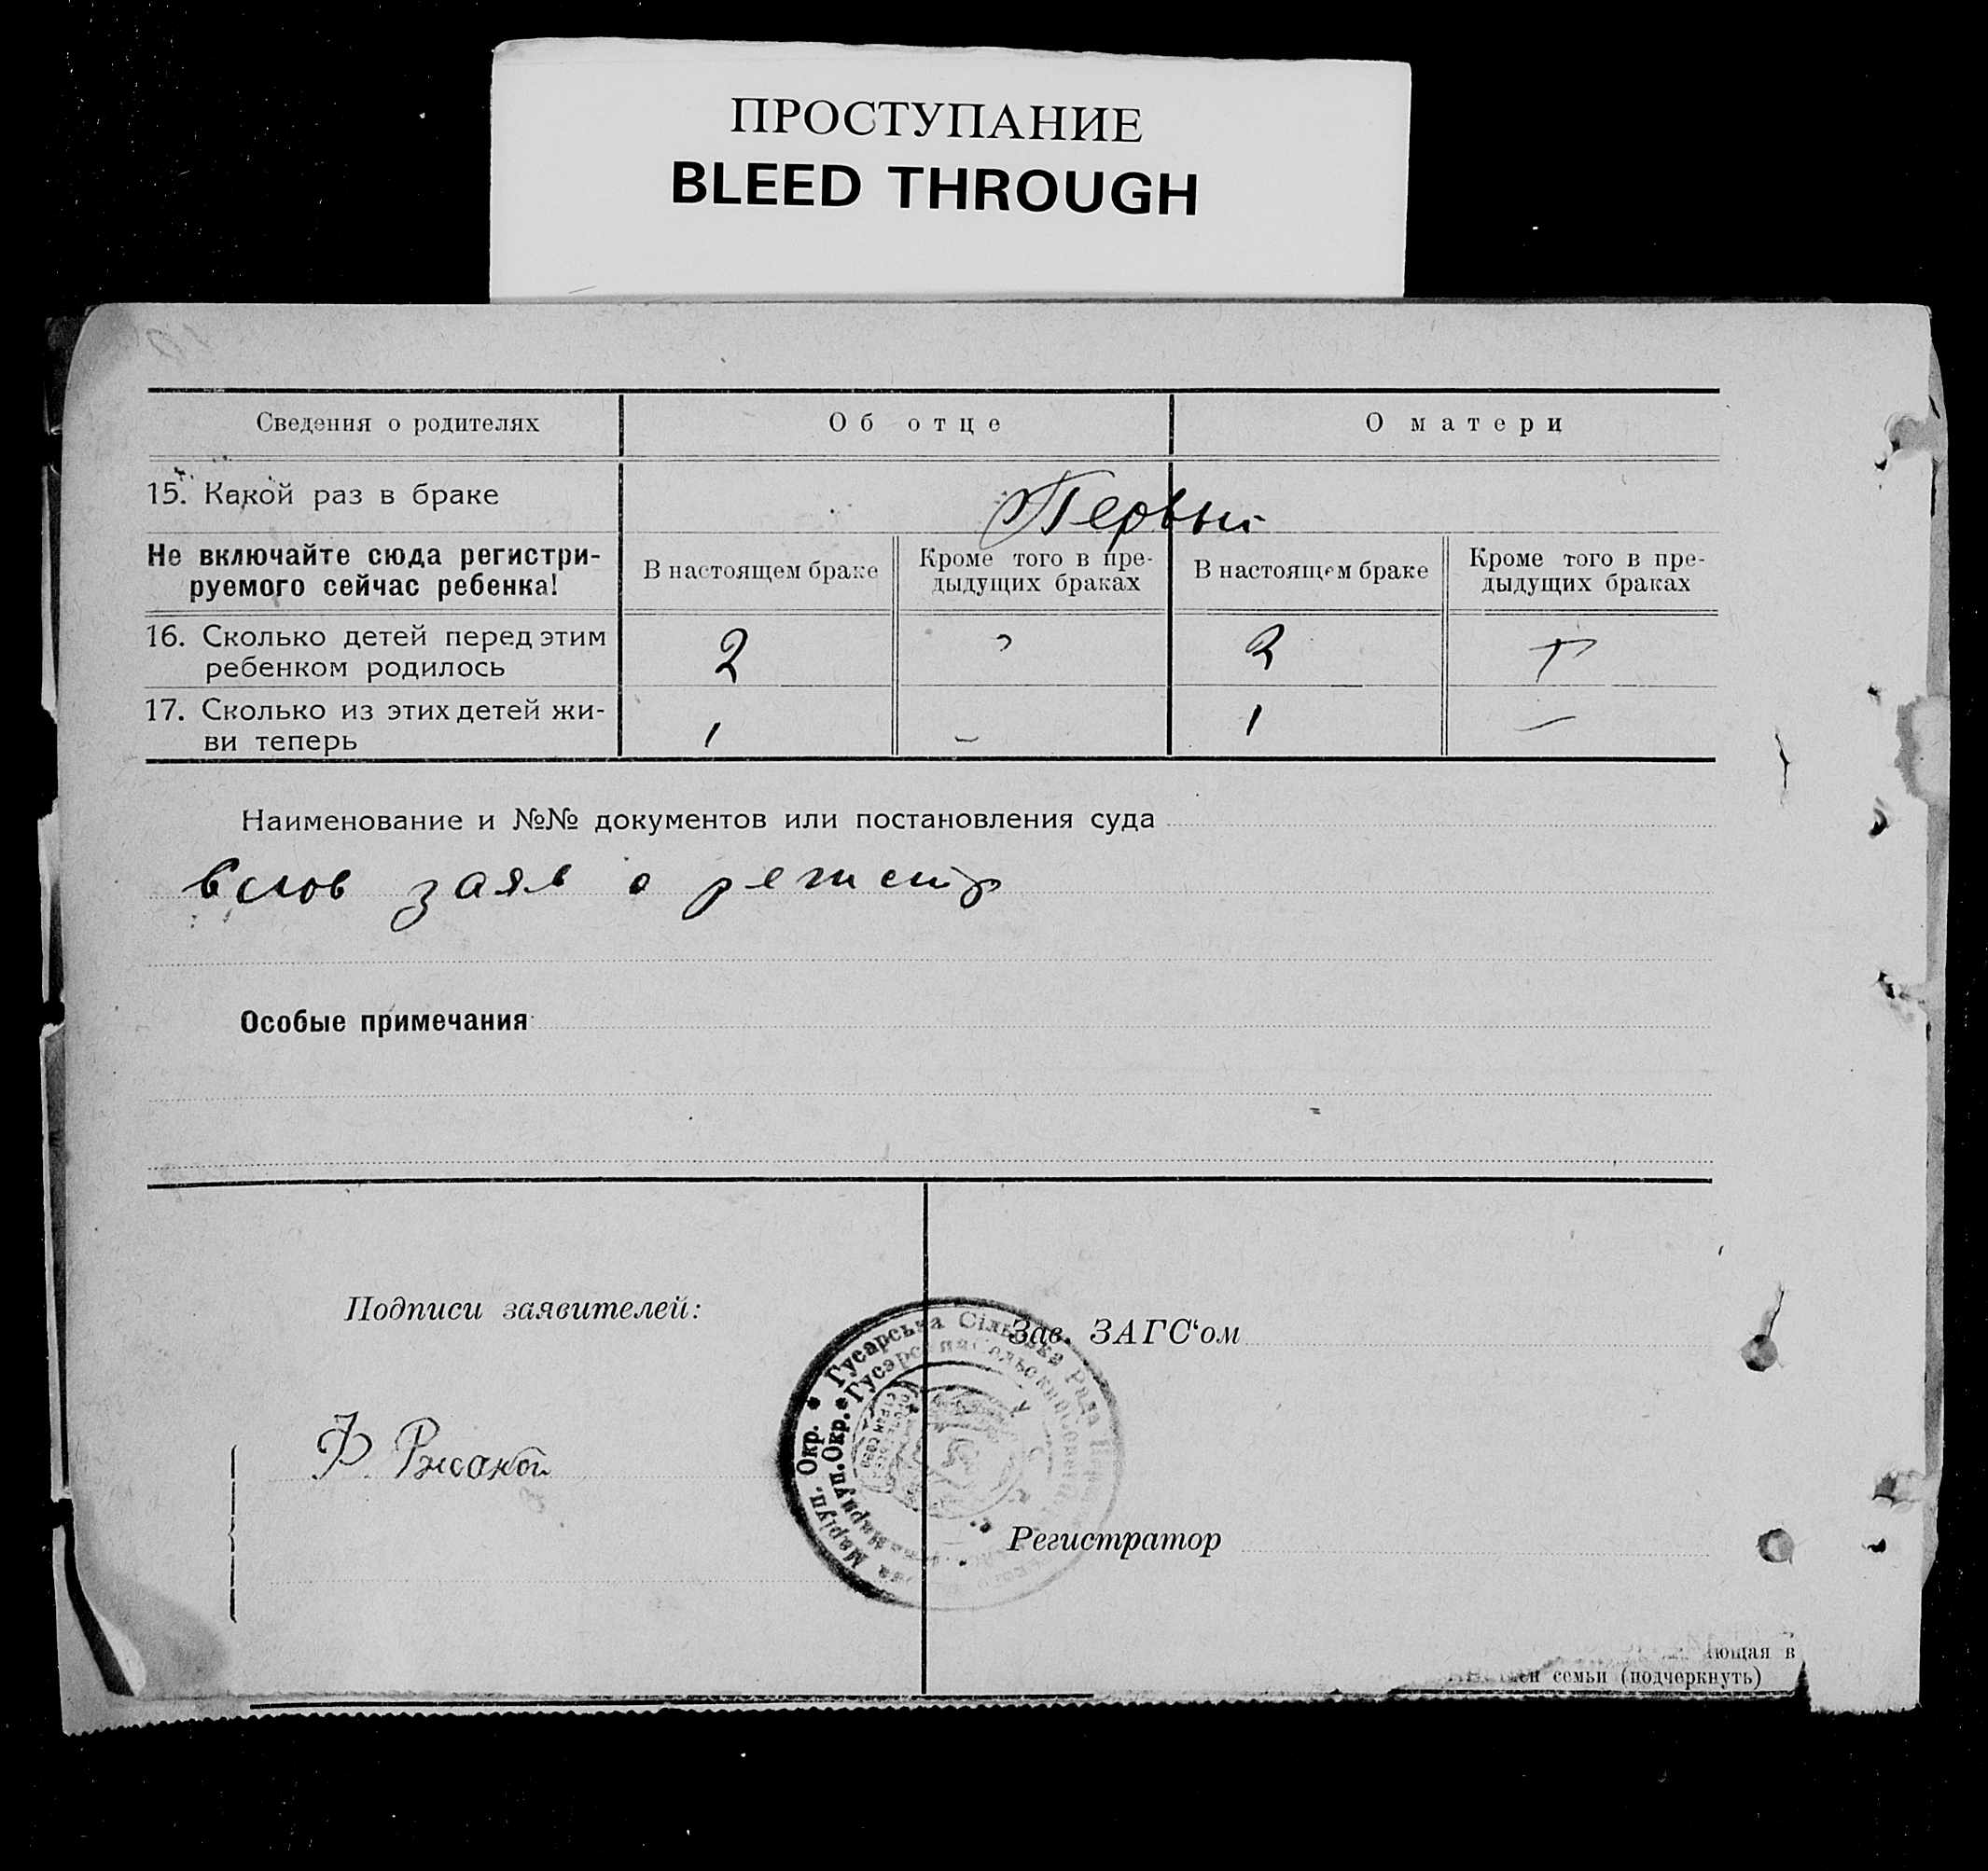 ПРОСТУПАНИЕ
BLEED THROUGH
Сведения о родителях
Об отце
О матери
15. Какой раз в браке
Первый
Не включайте сюда регистри-
руемого сейчас ребенка!
В настоящем браке
Кроме того в пре-
дыдущих браках
В настоящем браке
Кроме того в пре-
дыдущих браках
16. Сколько детей перед этим
ребенком родилось
2
2
17. Сколько из этих детей жи-
ви теперь
1
–
1
–
Наименование и №№ документов или постановления суда
заяв о
Особые примечания
Подписи заявителей:
Зав. ЗАГС‘ом
Гусарська Сільська Рада
Маріуп. Окр.
Мариуп. Окр.
Ф.
Регистратор
ющая в
семьи (подчеркнуть)